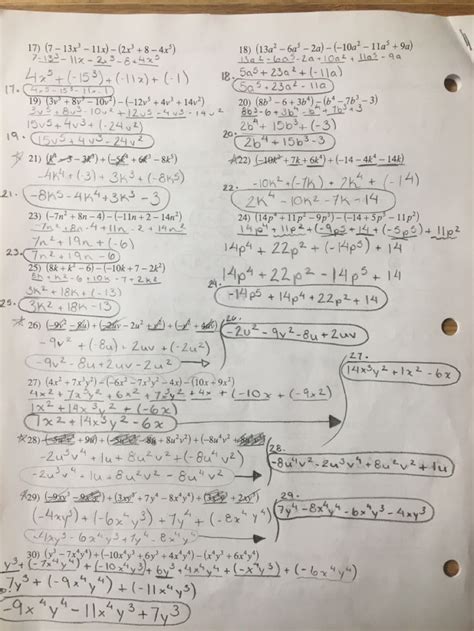 17) (7 − 13x³ − 11x) − (2x³ + 8 − 4x⁵)
7-13x³-11x-2x³-8+4x⁵
4x⁵ + (-15³) + (-11x) + (-1)
17. 4x⁵-15³-11x-1
18) (13a² − 6a⁵ − 2a) − (−10a² − 11a⁵ + 9a)
13a²-6a⁵-2a+10a²+11a⁵-9a
5a⁵ + 23a² + (-11a)
18. 5a⁵ + 23a² - 11a
19) (3v⁵ + 8v³ − 10v²) − (−12v⁵ + 4v³ + 14v²)
3v⁵+8v³-10v²+12v⁵-4v³-14v²
15v⁵ + 4v³ + (-24v²)
19. 15v⁵ + 4v³ - 24v²
20) (8b³ − 6 + 3b⁴) − (b⁴ − 7b³ − 3)
8b³-6+3b⁴-b⁴+7b³+3
2b⁴ + 15b³ + (-3)
20. 2b⁴ + 15b³ - 3
-4k⁴ + (-3) + 3k³ + (-8k⁵)
21. -8k⁵ - 4k⁴ + 3k³ - 3
22) (−10k² + 7k + 6k⁴) + (−14 − 4k⁴ − 14k)
-10k² + (-7k) + 2k⁴ + (-14)
22. 2k⁴ - 10k² - 7k - 14
23) (−7n² + 8n − 4) − (−11n + 2 − 14n²)
-7n²+8n-4+11n-2+14n²
7n² + 19n + (-6)
23. 7n² + 19n - 6
24) (14p⁴ + 11p² − 9p⁵) − (−14 + 5p⁵ − 11p²)
14p⁴+11p²+(-9p⁵)+14+(-5p⁵)+11p²
14p⁴ + 22p² + (-14p⁵) + 14
14p⁴ + 22p² - 14p⁵ + 14
24. -14p⁵ + 14p⁴ + 22p² + 14
25) (8k + k² − 6) − (−10k + 7 − 2k²)
8k+k²-6+10k-7+2k²
3k² + 18k + (-13)
25. 3k² + 18k - 13
-9v² + (-8u) + 2uv + (-2u²)
-9v² - 8u + 2uv - 2u²
26. -2u² - 9v² - 8u + 2uv
27) (4x² + 7x³y²) − (−6x² − 7x³y² − 4x) − (10x + 9x²)
4x² + 7x³y² + 6x² + 7x³y² + 4x + (-10x + (-9x²)
1x² + 14x³y² + (-6x)
1x² + 14x³y² - 6x
27. 14x³y² + 1x² - 6x
-2u³v⁴ + 1u + 8u²v² + (-8u⁴v²)
-2u³v⁴ + 1u + 8u²v² - 8u⁴v²
28. -8u⁴v² - 2u³v⁴ + 8u²v² + 1u
(-4xy³) + (-6x⁴y⁴) + 7y⁴ + (-8x⁴y⁴)
-4xy³ - 6x⁴y³ + 7y⁴ - 8x⁴y⁴
29. 7y⁴ - 8x⁴y⁴ - 6x⁴y³ - 4xy³
30) (y³ − 7x⁴y⁴) + (−10x⁴y³ + 6y³ + 4x⁴y⁴) − (x⁴y³ + 6x⁴y⁴)
y³ + (-7x⁴y⁴) + (-10x⁴y³) + 6y³ + 4x⁴y⁴ + (-x⁴y³) + (-6x⁴y⁴)
7y³ + (-9x⁴y⁴) + (-11x⁴y³)
-9x⁴y⁴ - 11x⁴y³ + 7y³